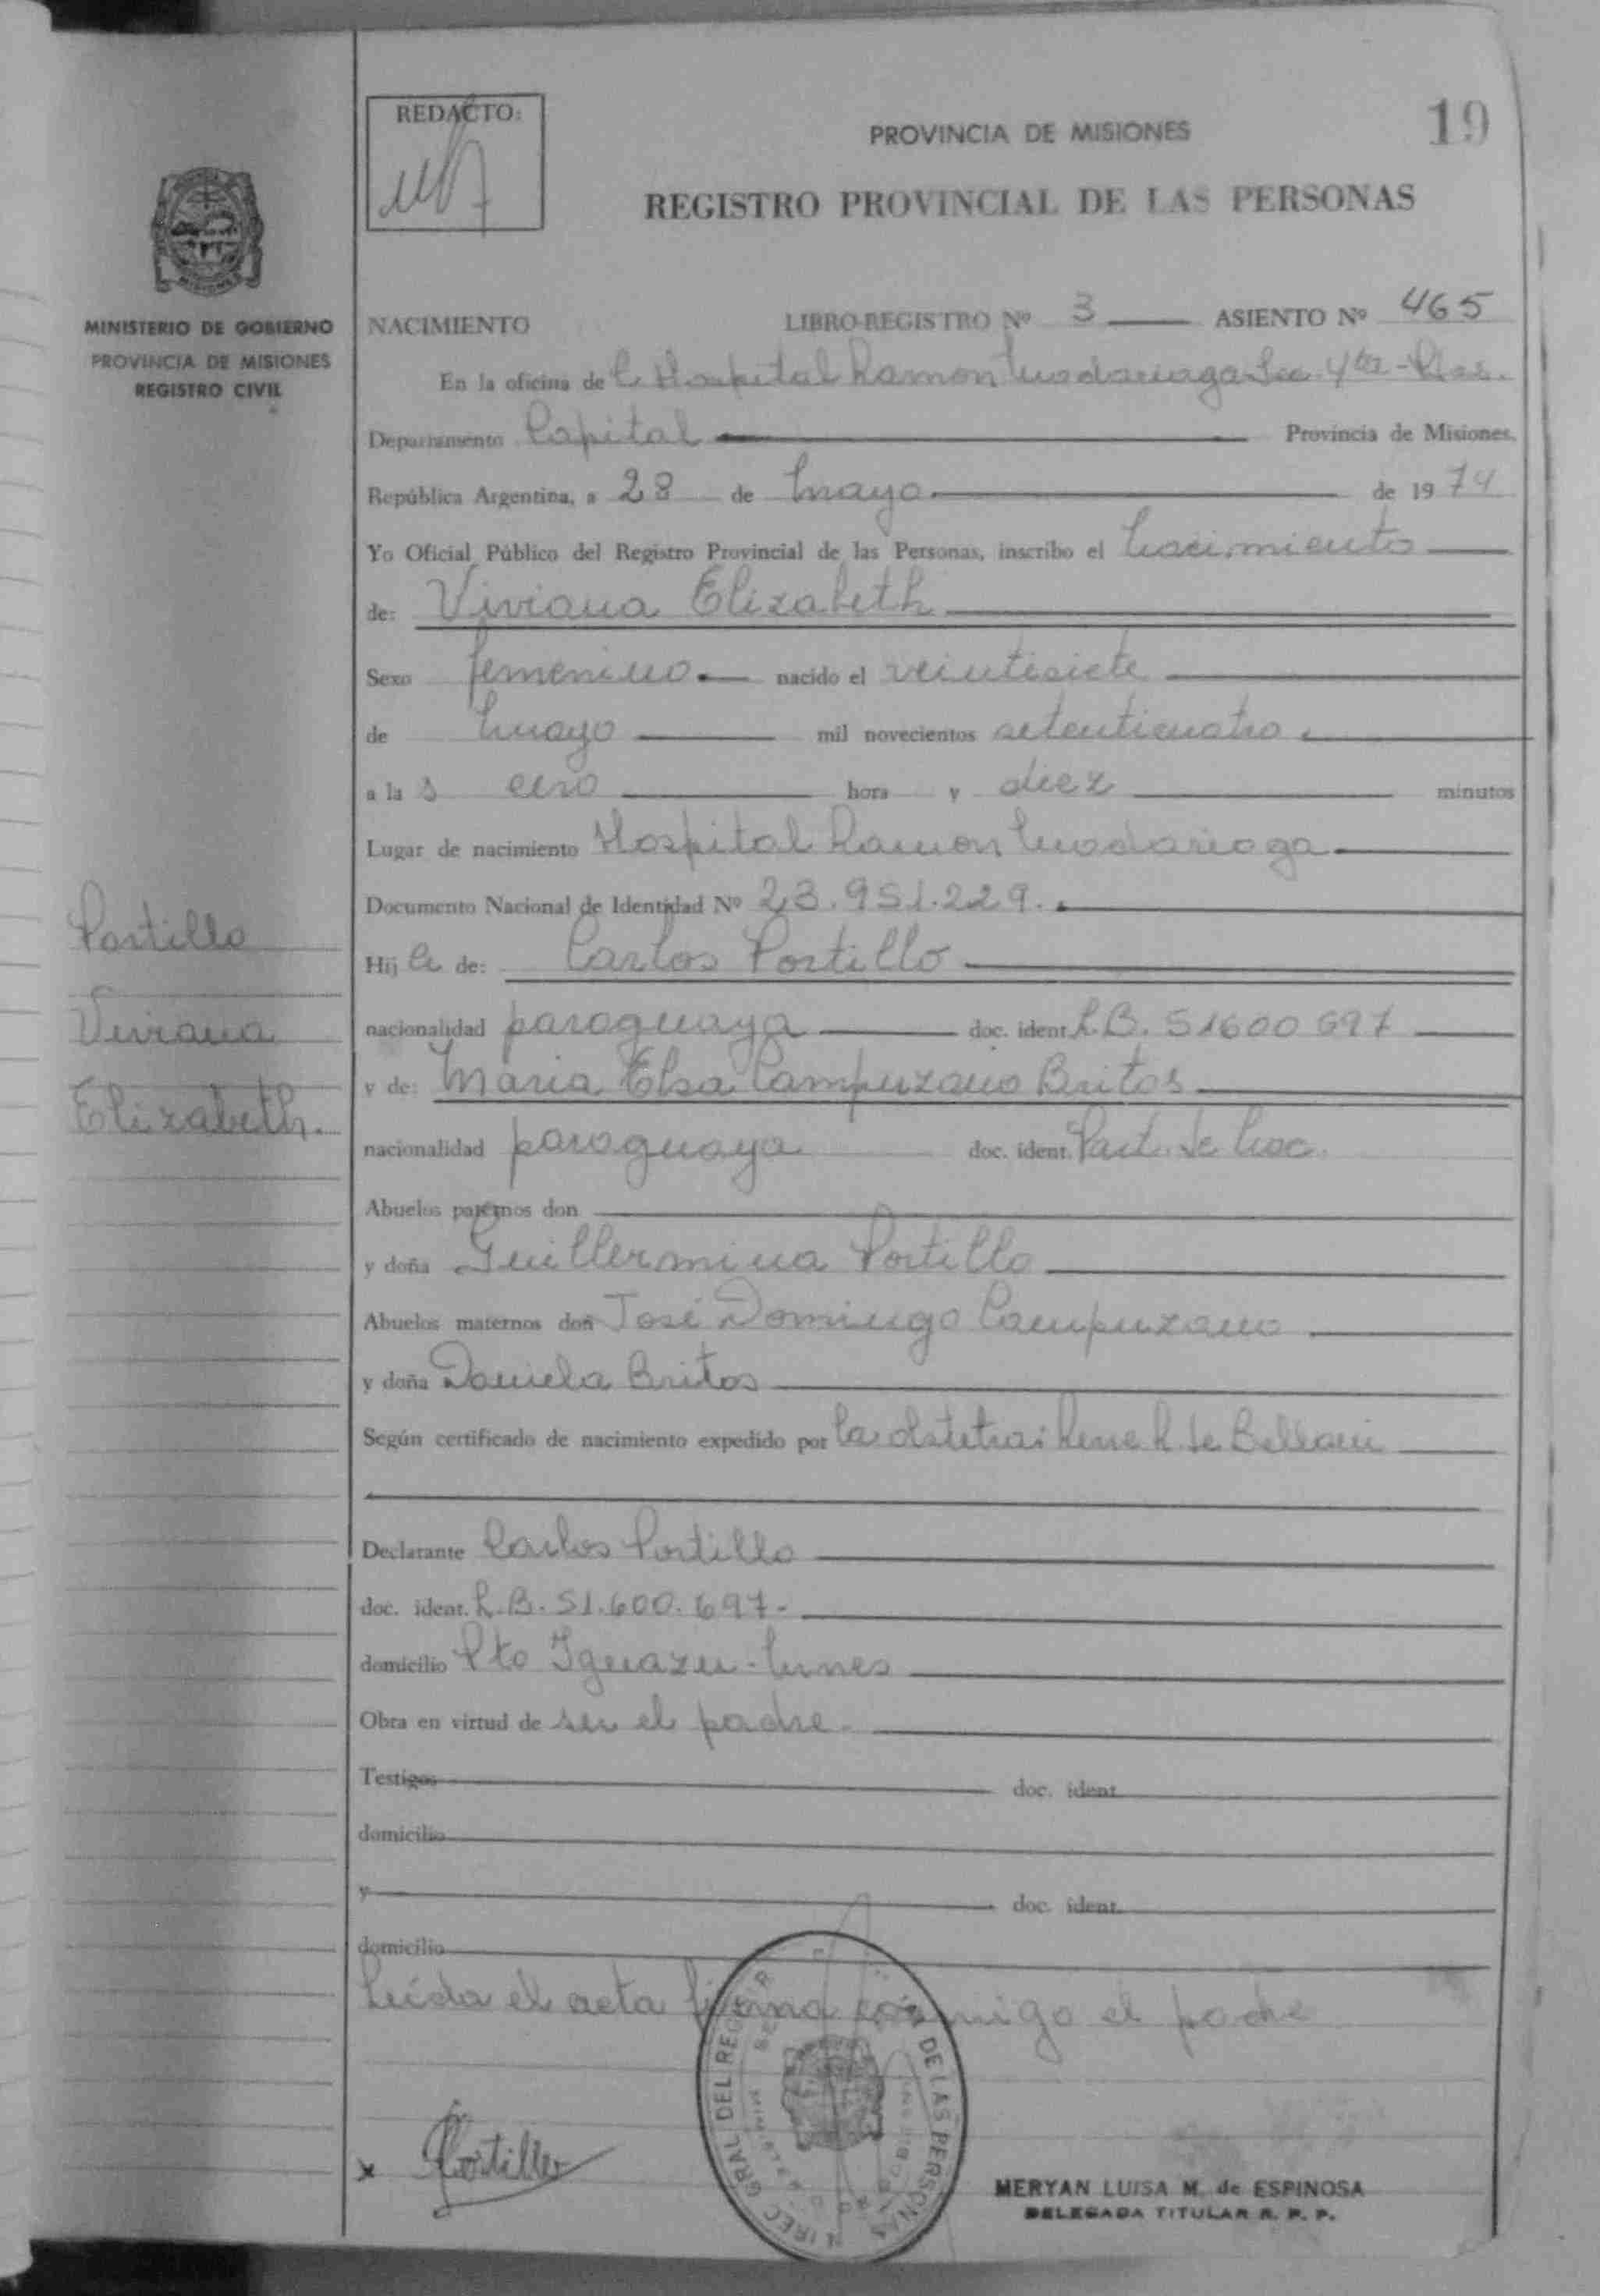 REDACTO:
PROVINCIA DE MISIONES
19
REGISTRO PROVINCIAL DE LAS PERSONAS
MINISTERIO DE GOBIERNO
PROVINCIA DE MISIONES
REGISTRO CIVIL
NACIMIENTO LIBRO-REGISTRO Nº 3 ASIENTO Nº 465
En la oficina de Hospital Ramon Madariaga Sec. 4ta - Pdas.
Departamento Capital Provincia de Misiones,
República Argentina, a 28 de Mayo de 1974
Yo Oficial Público del Registro Provincial de las Personas, inscribo el Nacimiento
de: Viviana Elizabeth
Sexo femenino nacido el veintisiete
de Mayo mil novecientos setenticuatro
a la s cero hora y diez minutos
Lugar de nacimiento Hospital Ramon Madariaga
Documento Nacional de Identidad Nº 23.951.229.
Hij a de: Carlos Portillo
nacionalidad paraguaya doc. ident. L.B. 51600697
y de: Maria Elsa Campuzano Britos
nacionalidad paraguaya doc. ident. Part. de Nac.
Abuelos paternos don
y doña Guillermina Portillo
Abuelos maternos don José Domingo Campuzano
y doña Daniela Britos
Según certificado de nacimiento expedido por la obstetra: de
Declarante Carlos Portillo
doc. ident. L.B. 51.600.697.
domicilio Pto Iguazu - Mnes
Obra en virtud de ser el padre
Testigos doc. ident.
domicilio
y doc. ident.
domicilio
Leída el acta firma conmigo el padre
Portillo
Viviana
Elizabeth.
x Portillo
DIREC. GRAL DEL REG DE LAS PERSONAS
MERYAN LUISA M. de ESPINOSA
DELEGADA TITULAR R. P. P.